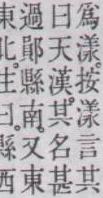 爲漾。按漾言其
曰天漢。其名甚
過鄖縣南。又東
東北生曰。縣西